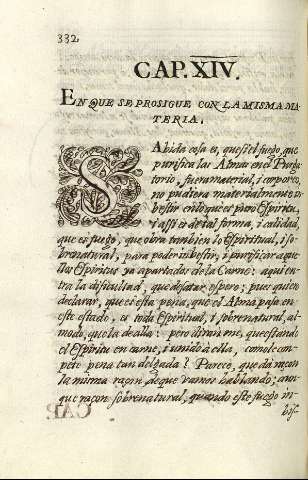 332.
CAP. XIV.
EN QUE SE PROSIGUE CON LA MISMA MA
TERIA.
SAbida cosa es, que si el fuego, que
purifica las Almas en el Purga
torio, fuera material, i corporeo,
no pudiera materialmente in
bestir en lo que es puro Espiritu,
i assi es de tal forma, i calidad,
que es fuego, que obra tambien lo Espiritual, i so
brenatural, para poder inbestir, i purificar aque
llos Espiritus ya apartados de la Carne: aqui en
tra la dificultad, que desatar espero; pues quiero
declarar, que si esta pena, que el Alma pasa en
este estado, es toda Espiritual, i sobrenatural, al
modo, que la de alla: pero diranme, que estando
el Espiritu en carne, i unido à ella, como le com
pete pena tan delgada? Parece, que dà raçon
la misma raçon, de que vamos hablando; aun
que raçon sobrenatural, quando este fuego in
bis-